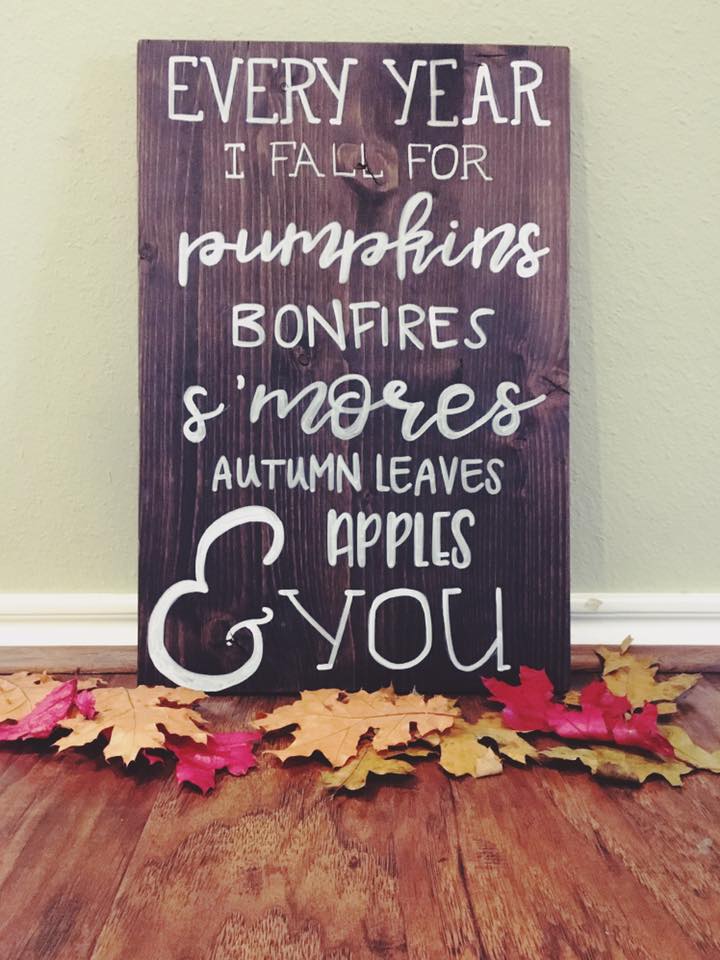 EVERY YEAR
I FALL FOR
pumpkins
BONFIRES
s'mores
AUTUMN LEAVES
APPLES
& YOU